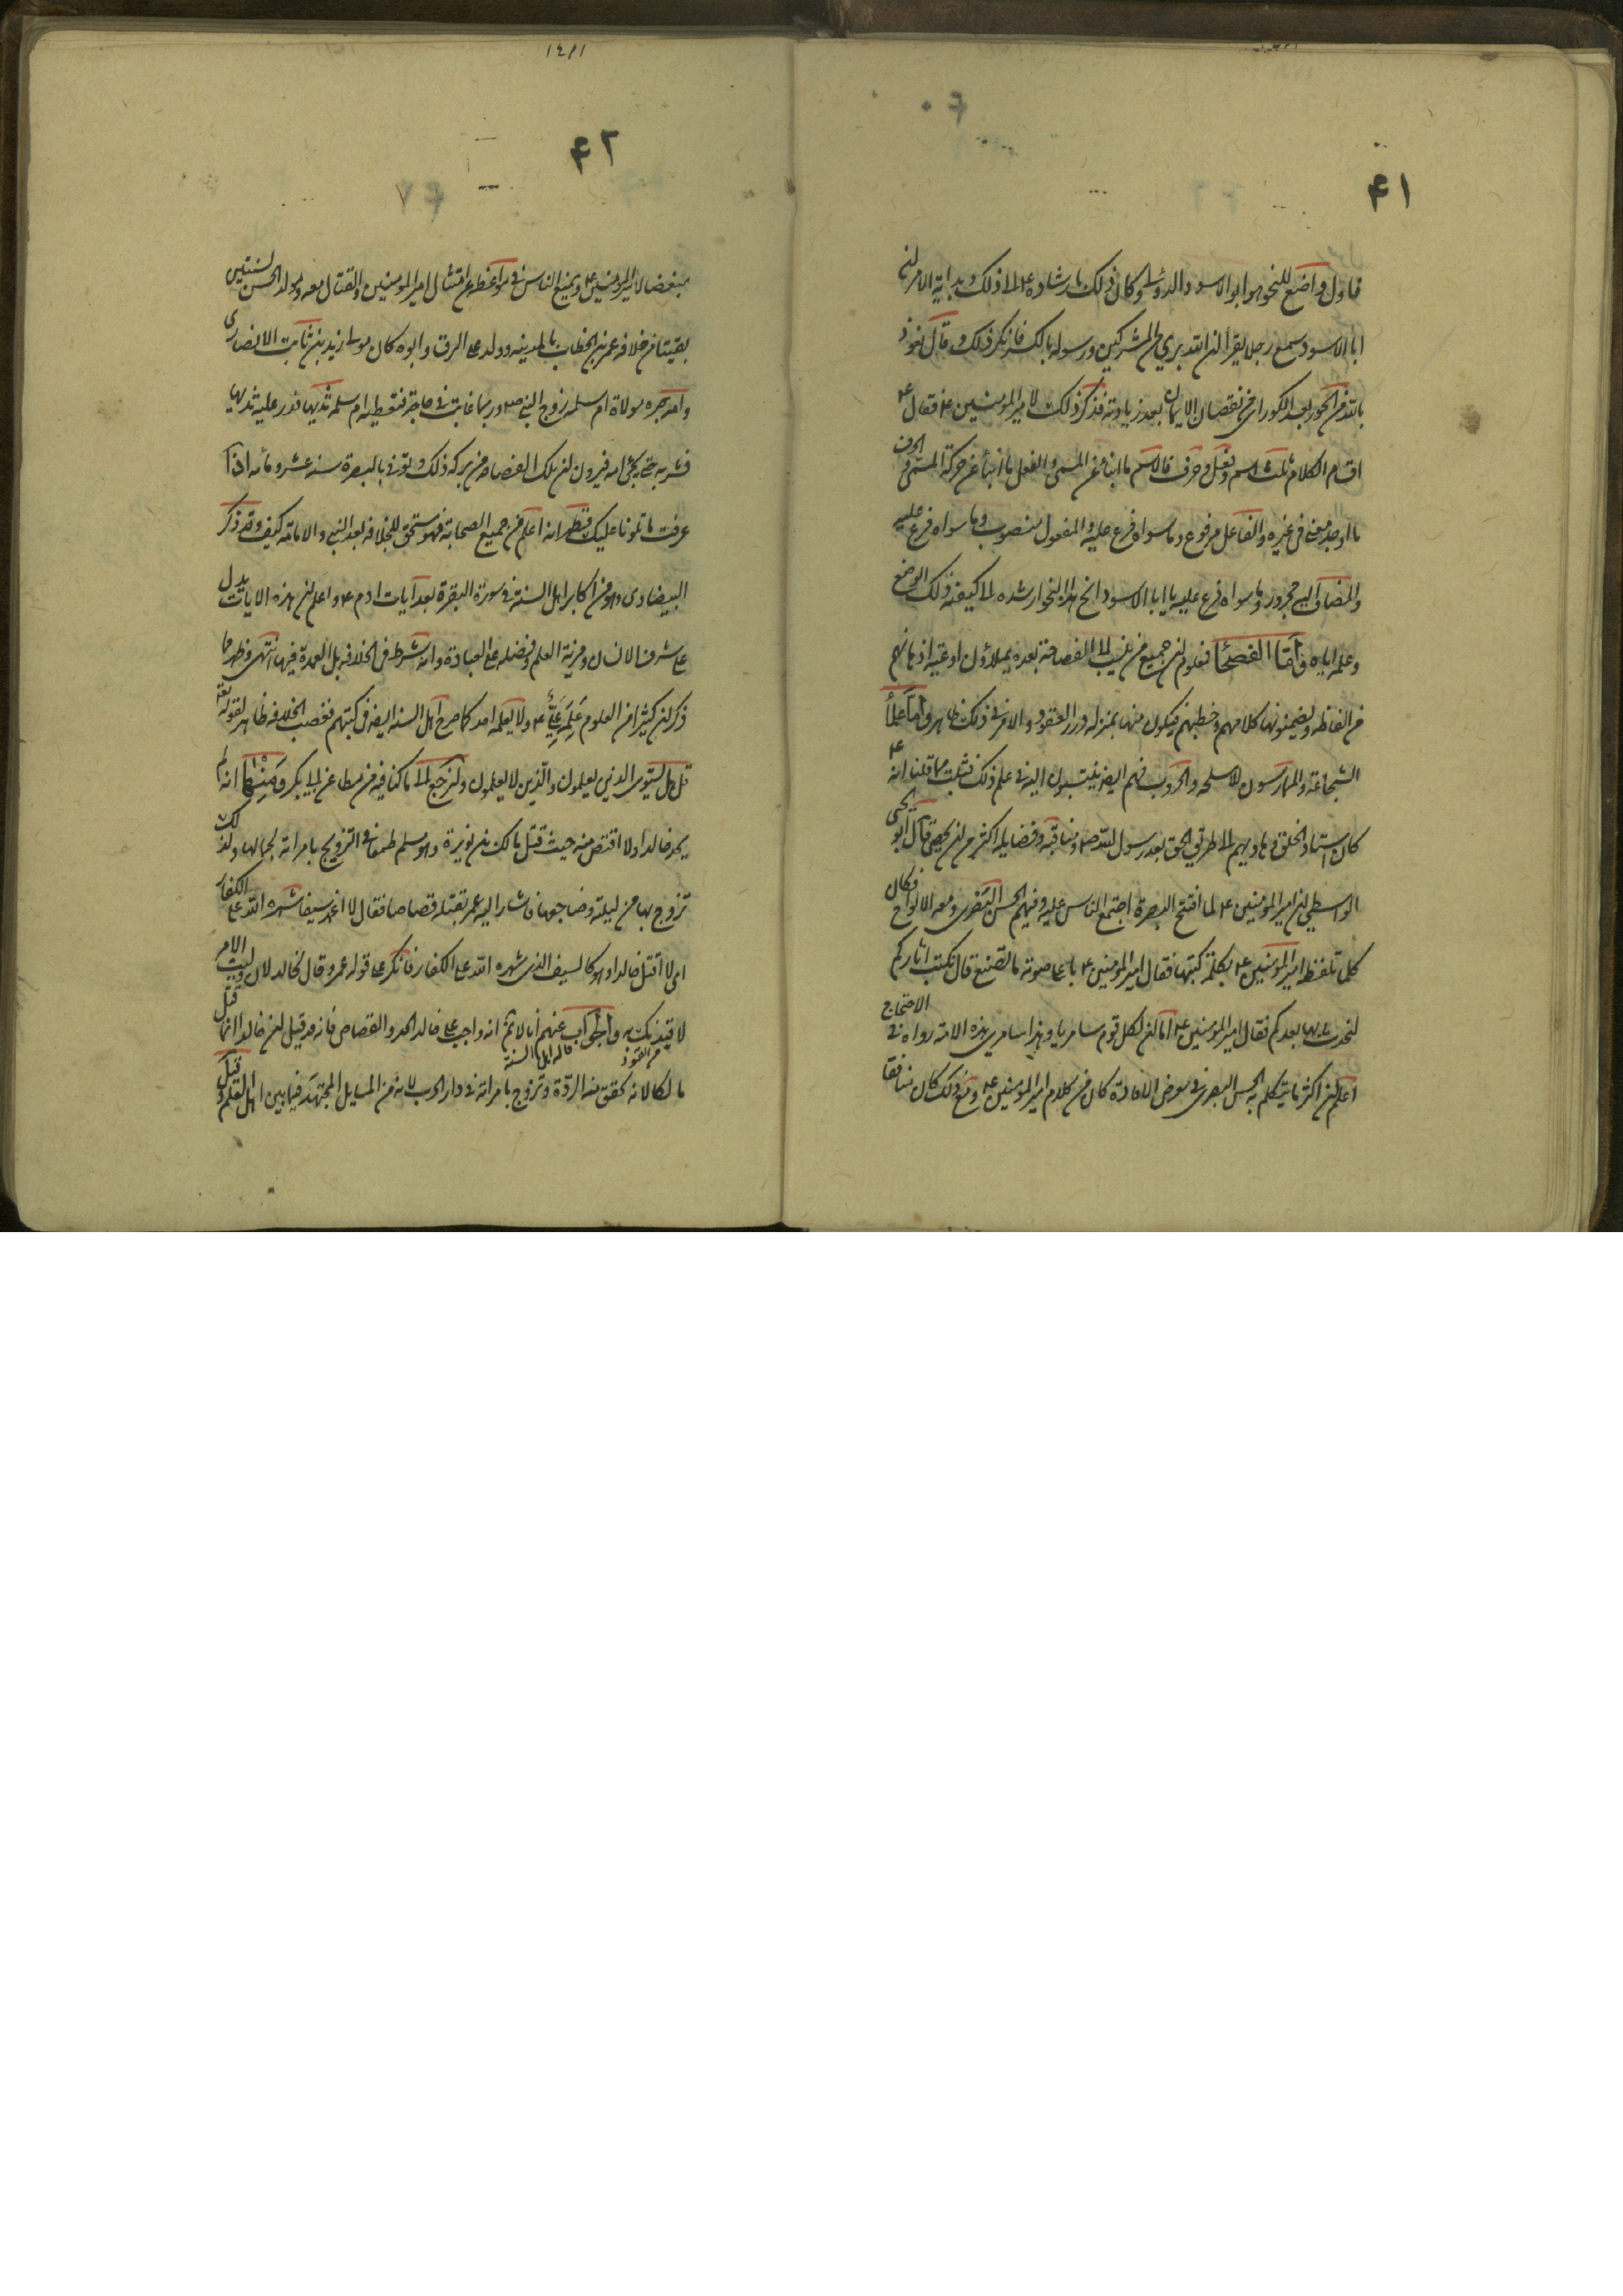 ۴۱
فاول واضع للنحو هو ابو الاسود الدؤلى وكان ذلك بارشاده ع الى ذلك وبداية الامر ان
ابا الاسود سمع رجلا يقرأ ان الله بريء من المشركين ورسوله بالكسر فانكر ذلك وقال نعوذ
بالله من الحور بعد الكور اى من نقصان الايمان بعد زيادته فذكر ذلك لامير المؤمنين ع فقال ع
اقسام الكلام ثلث اسم وفعل وحرف فالاسم ما انبأ عن المسمى والفعل ما انبأ عن حركة المسمى والحرف
ما اوجد معنى فى غيره والفاعل مرفوع وما سواه فرع عليه والمفعول منصوب وما سواه فرع عليه
والمضاف اليه مجرور وما سواه فرع عليه يا ابا الاسود انح هذا النحو ارشده الى كيفية ذلك الوضع
وعلمه اياه واما الفصحا فمعلوم ان جميع من ينسب الى الفصاحة بعده يملاؤن اوعية اذهانهم
من الفاظه ويضمنونها كلامهم وخطبهم فيكون منها بمنزلة درر العقود والامر فى ذلك ظاهر واما علماء
الشجاعة والممارسون للاسلحة والحروب فهم ايضا ينتسبون اليه فى علم ذلك فثبت بما قلنا انه ع
كان استاد الخلق وهاديهم الى طريق الحق بعد رسول الله ص ومناقبه وفضايله اكثر من ان يحصى قال ابو يحيى
الواسطى ان امير المؤمنين ع لما افتتح البصرة اجتمع الناس عليه وفيهم الحسن البصرى ومعه الالواح فكان
كلما تلفظ امير المؤمنين ع بكلمة كتبها فقال امير المؤمنين ع باعلى صوته ما تصنع قال نكتب اثاركم
لنحدث بها بعدكم فقال امير المؤمنين ع اما ان لكل قوم سامريا وهذا سامرى هذه الامة رواه فى الاحتجاج
اعلم ان اكثر ما يتكلم به الحسن البصرى فى معرض الافادة كان من كلام امير المؤمنين ع ومع ذلك كان منافقا
۱۴۸۱
۴۲
مبغضا لامير المؤمنين ع ويمنع الناس فى مواعظه عن امتثال امير المؤمنين والقتال معه ومولد الحسن لسنتين
بقيتا من خلافة عمر بن الخطاب بالمدينة وولد على الرق وابوه كان مولى زيد بن ثابت الانصارى
وامه خيره مولاة ام سلمه زوج النبى ص وربما غابت فى حاجة فتعطيه ام سلمه ثديها فدر عليه ثديها
فشربه حتى يجئ امه فيرون ان تلك الفصاحة من بركة ذلك وتوفى بالبصرة سنه عشر ومأه اذا
عرفت ما تلونا عليك فظهر انه اعلم من جميع الصحابة فهو مستحق للخلافة بعد النبى والامامة كيف وقد ذكر
البيضاوى وهو من اكابر اهل السنة فى سورة البقرة بعد آيات ادم ع واعلم ان هذه الايات تدل
على شرف الانسان ومزية العلم وفضله على العبادة وانه شرط فى الخلافة بل العمدة فيها انتهى وظهر مما
ذكر ان كثيرا من العلوم علمه على ع ولا يعلمه احد كما صرح اهل السنه ايضا فى كتبهم فغصب الخلافة ظاهر لقوله تعه
قل هل يستوى الذين يعلمون والذين لا يعلمون ولنرجع الى ما كنا فيه من مطاعن ابى بكر ومنها انه لم
يحد خالدا ولا اقتص منه حيث قتل مالك بن نويرة وهو مسلم طمعا فى التزويج بامراته لجمالها ولذلك
تزوج بها من ليلته وضاجعها فاشار اليه عمر بقتله قصاصا فقال لا اغمد سيفا شهره الله على الكفار
اى لا اقتل خالدا وهو كالسيف الذى شهره الله على الكفار فانكر على قوله عمر وقال لخالد لان وليت الامر
لاقيدنك به والجواب عنهم انا لا نم انه واجب على خالد الحد والقصاص فانه قد قيل ان خالدا انما قتل
من القود قاله اهل السنة
مالكا لانه تحقق منه الردة وتزوج بامراته فى دار الحرب لانه من المسايل المجتهد فيها بين اهل العلم وقيل